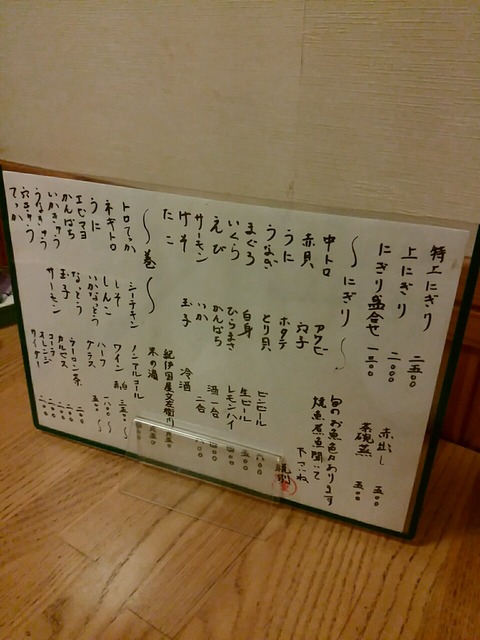 特上にぎり 二五〇〇
上にぎり 二〇〇〇
にぎり盛合せ 一三〇〇
赤出し 五〇〇
茶碗蒸 五〇〇
〜にぎり〜
旬のお魚色々あります
焼魚煮魚聞いて
下さいね
中トロ
赤貝
うに
うなぎ
まぐろ
いくら
えび
サーモン
げそ
たこ
アワビ
穴子
ホタテ
とり貝
白身
ひらまさ
かんぱち
いか
玉子
税別
ビンビール 六〇〇
生ビール 五〇〇
レモンハイ 四〇〇
酒一合 四〇〇
二合 八〇〇
冷酒
紀伊国屋文左衛門
米の滴
〜巻〜
トロてっか
ネギトロ
うに
エビマヨ
かんぱち
いかきゅう
うなきゅう
穴きゅう
てっか
シーチキン
しそ
しんこ
いかなっとう
なっとう
玉子
サーモン
ノンアルコール
ワイン 赤 白
ハーフ
グラス
ウーロン茶
カルピス
コーラ
オレンジ